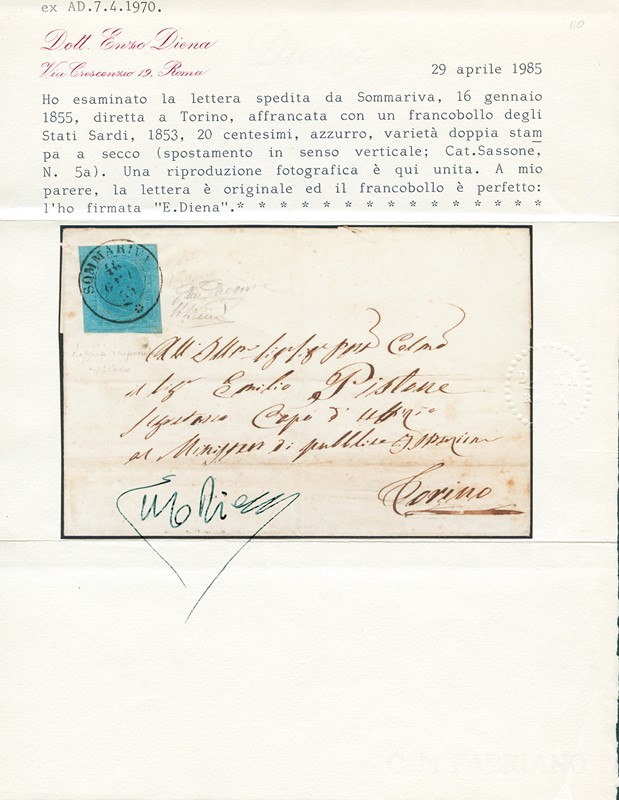 ex AD.7.4.1970.
110
Dott. Enzo Diena
Via Crescenzio 19, Roma
29 aprile 1985
Ho esaminato la lettera spedita da Sommariva, 16 gennaio
1855, diretta a Torino, affrancata con un francobollo degli
Stati Sardi, 1853, 20 centesimi, azzurro, varietà doppia stam
pa a secco (spostamento in senso verticale; Cat.Sassone,
N. 5a). Una riproduzione fotografica è qui unita. A mio
parere, la lettera è originale ed il francobollo è perfetto:
l'ho firmata "E.Diena".* * * * * * * * * * * * * * * *
SOMMARIVA
16
GEN
55
Emilio Pistone
Segretario Capo d'Uffizio
al Ministero di pubblica Istruzione
Torino
Enzo Diena
C.M. FABRIANO